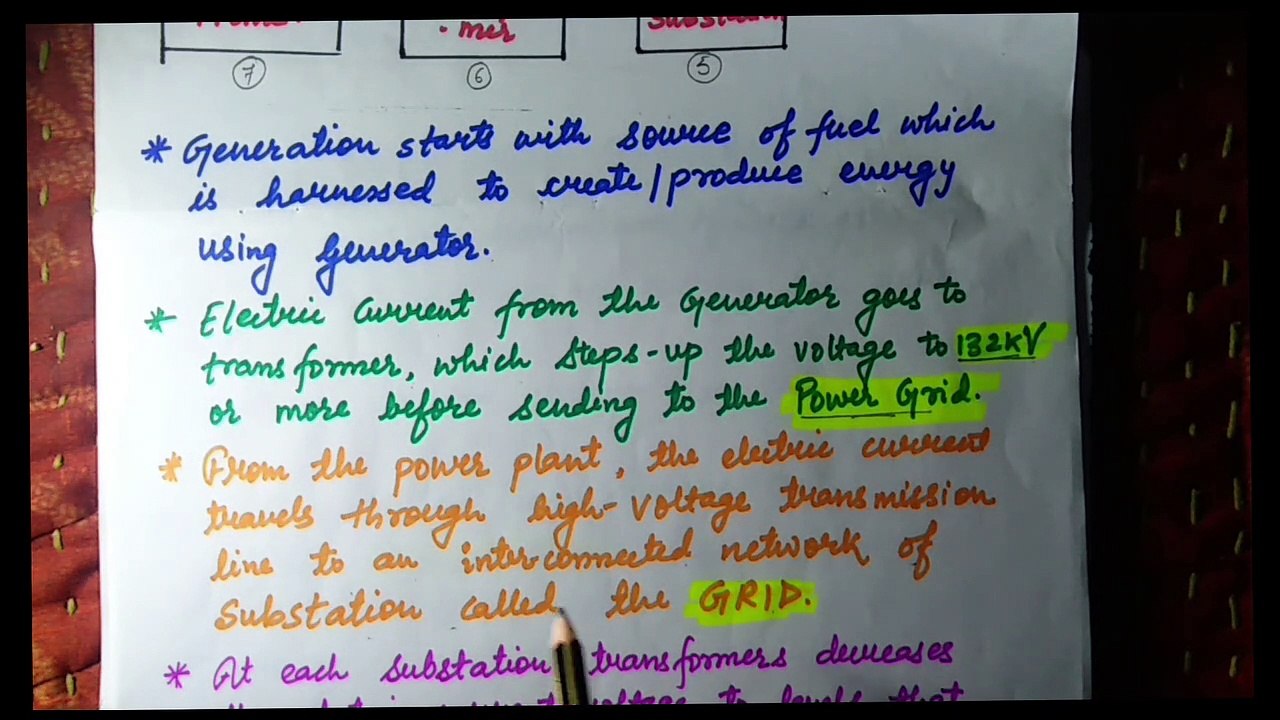 . mer
⑦ ⑥ ⑤
* Generation starts with source of fuel which
is harnessed to create/produce energy
using generator.
* Electric Current from the Generator goes to
transformer, which steps-up the voltage to 132kV
or more before sending to the Power Grid.
* From the power plant, the electric current
travels through high-voltage transmission
line to an interconnected network of
Substation called the GRID.
* At each substation transformers decreases
voltage to levels that